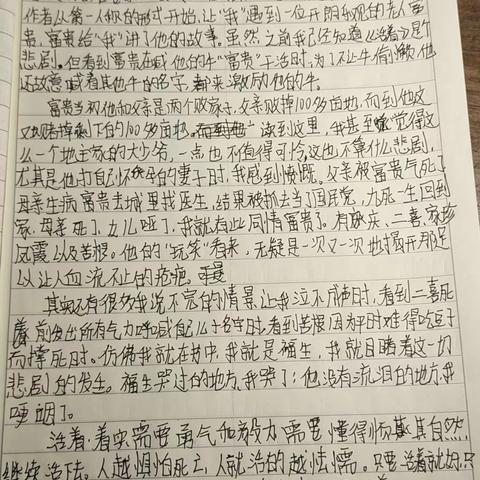 作者从第一人称的形式开始,让“我”遇到一位开朗乐观的老人富
贵,富贵给“我”讲了他的故事。虽然之前我已经知道《活着》是个
悲剧。但看到富贵在喊他的牛“富贵”干活时,为了不让牛偷懒他
还故意喊着其他牛的名字,都来激励他的牛。
富贵当初他和父亲是两个败家子,父亲败掉100多亩地,而到他这
又赌掉剩下的100多亩地。读到这里,我甚至觉得这
么一个地主家的大少爷,一点也不值得可怜,这也不算什么悲剧,
尤其是他打自己怀孕的妻子时,我感到愤慨。父亲被富贵气死了
母亲生病富贵去城里找医生,结果被抓去当了国民党,九死一生回到
家,母亲死了,女儿哑了,我就有些同情富贵了。有庆、二喜、家珍
凤霞以及苦根。他的“玩笑”看来,无疑是一次又一次地揭开那足
以让人血流不止的疮疤。
其实还有很多我说不完的情景让我泣不成声时,看到二喜死
前发出所有气力呼喊自己儿子名字时,看到苦根因为平时难得吃豆子
而撑死时。仿佛我就在书中,我就是福生,我就目睹着这一切
悲剧的发生。福生哭过的地方,我哭了;他没有流泪的地方我
哽咽了。
活着,着实需要勇气和毅力,需要懂得顺其自然,
继续活下。人越惧怕死亡,人就活的越怯懦。只要活着就